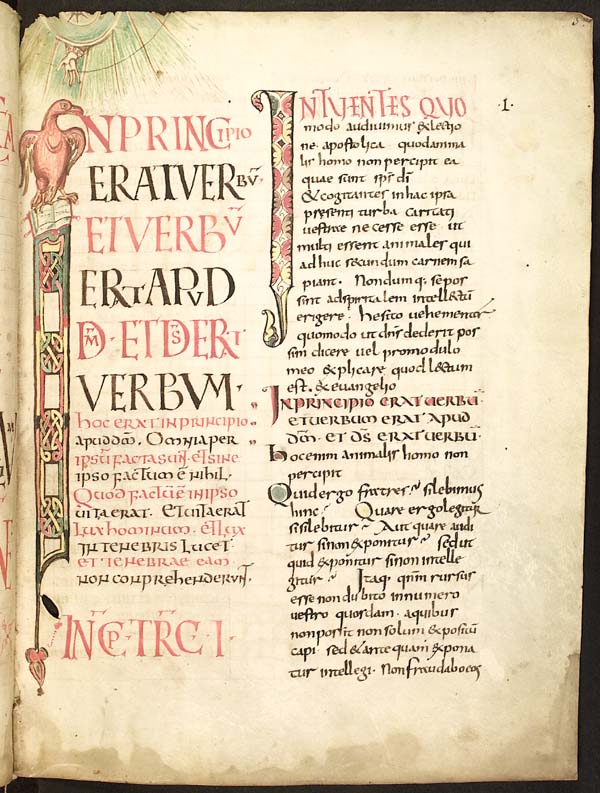 IN PRINCIPIO
ERAT VERBŪ
ET VERBŪ
ERAT APUD
D̄M · ET D̄S ERAT
VERBUM ·
hoc erat in principio
apud dm̄. Omnia per
ipsū facta sunt. et sine
ipso factum ē nihil.
Quod factū ē in ipso
uita erat. Et uita erat
lux hominum. et lux
in tenebris lucet.
et tenebrae eam
non comprehenderunt.
INCP̄ · TRC̄ · I ·
INTUENTES QUO · I ·
modo audiuimus ex lectio
ne apostolica quod anima
lis homo non percipit ea
quae sunt sp̄s dī
& cogitantes in hac ipsa
presenti turba caritatis
uestrae necesse esse ut
multi essent animales qui
adhuc secundum carnem sa
piant. Nondum q; se pos
sint ad spiritalem intellectū
erigere. hesito uehementer
quomodo ut dn̄s dederit pos
sim dicere uel pro modulo
meo explicare quod lectum
est. ex euangelio
IN PRINCIPIO ERAT UERBŪ
ET UERBUM ERAT APUD
D̄M · ET D̄S ERAT UERBŪ ·
hoc enim animalis homo non
percipit
Quid ergo fratres silebimus
hinc Quare ergo legitur
si silebitur Aut quare audi
tur si non exponitur sed ut
quid exponitur si non intelle
gitur Itaq; qnm̄ rursus
esse non dubito in numero
uestro quosdam. a quibus
non possit non solum expositū
capi sed & ante quam expona
tur intellegi. Non fraudabo eos